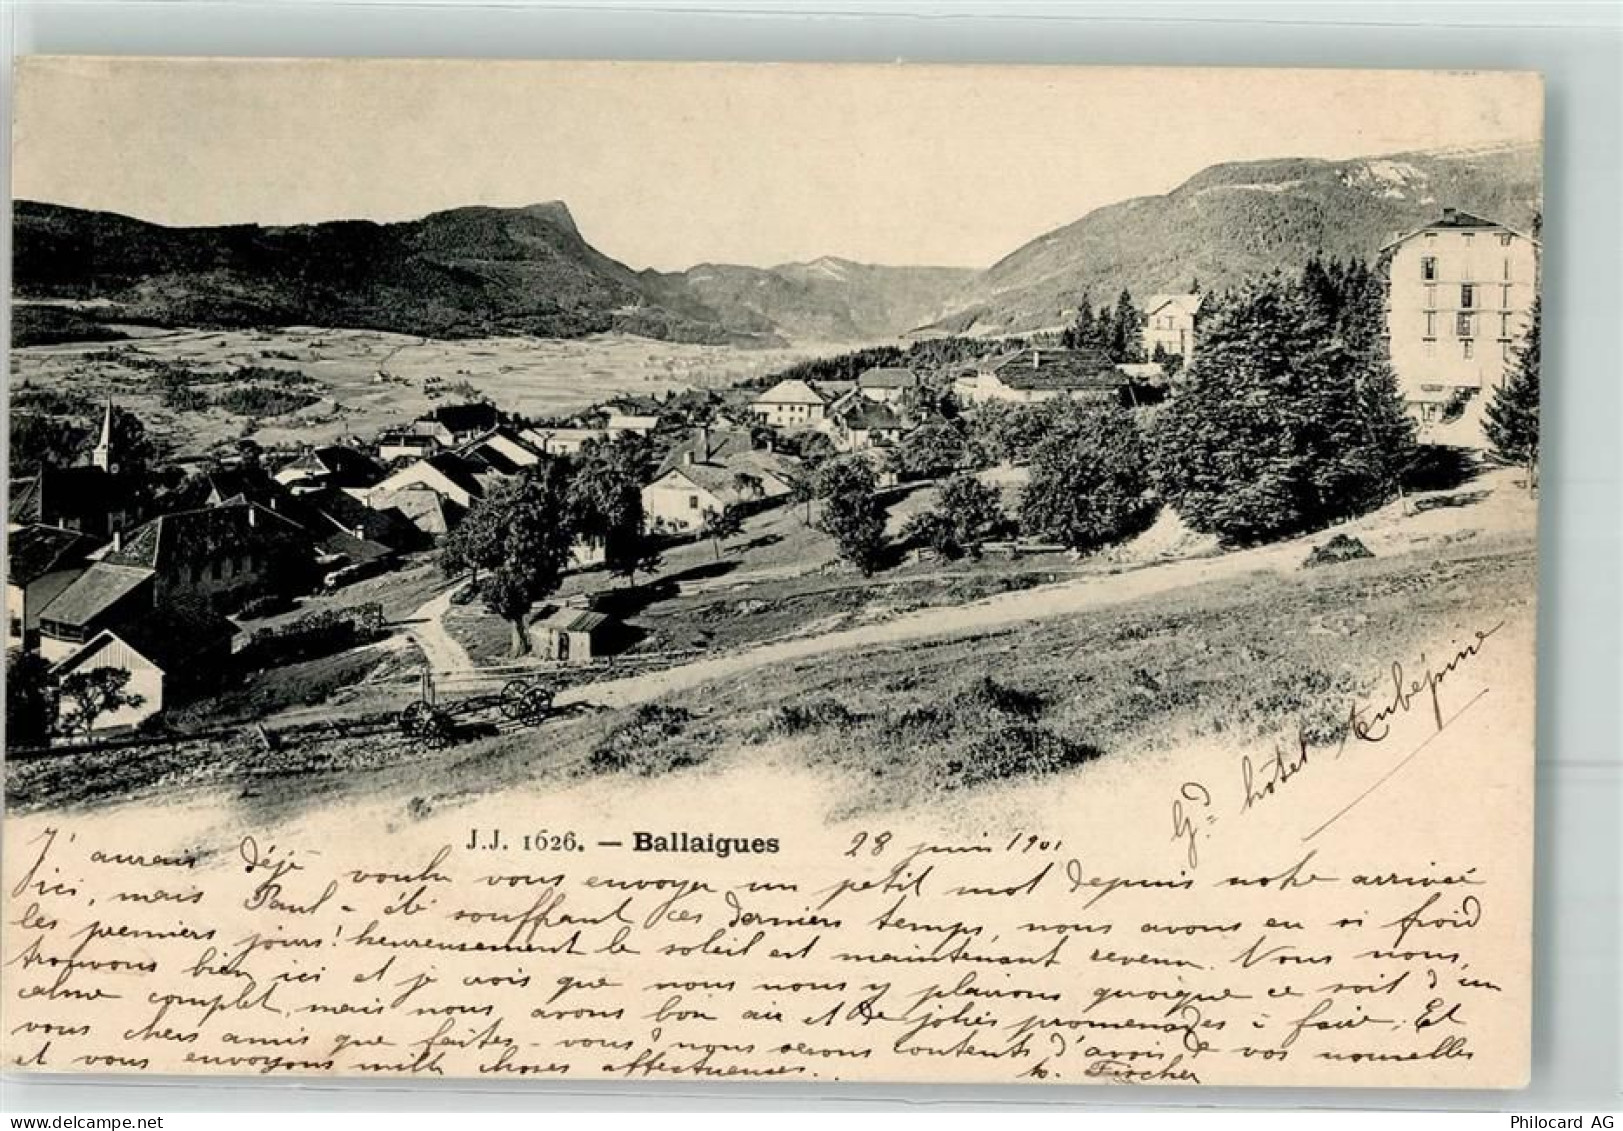 Gd. hôtel Aubépine
J.J. 1626. — Ballaigues
28 juin 1901
J'aurais déjà voulu vous envoyer un petit mot depuis notre arrivée
ici, mais Paul a été souffrant ces derniers temps, nous avons eu si froid
les premiers jours! heureusement le soleil est maintenant revenu. Nous nous
trouvons bien ici et je crois que nous nous y plairons quoique ce soit d'un
calme complet, mais nous avons bon air et de jolies promenades à faire. Et
vous chers amis que faites-vous? nous serons contents d'avoir de vos nouvelles
et vous envoyons mille choses affectueuses.
Fischer
Philocard AG